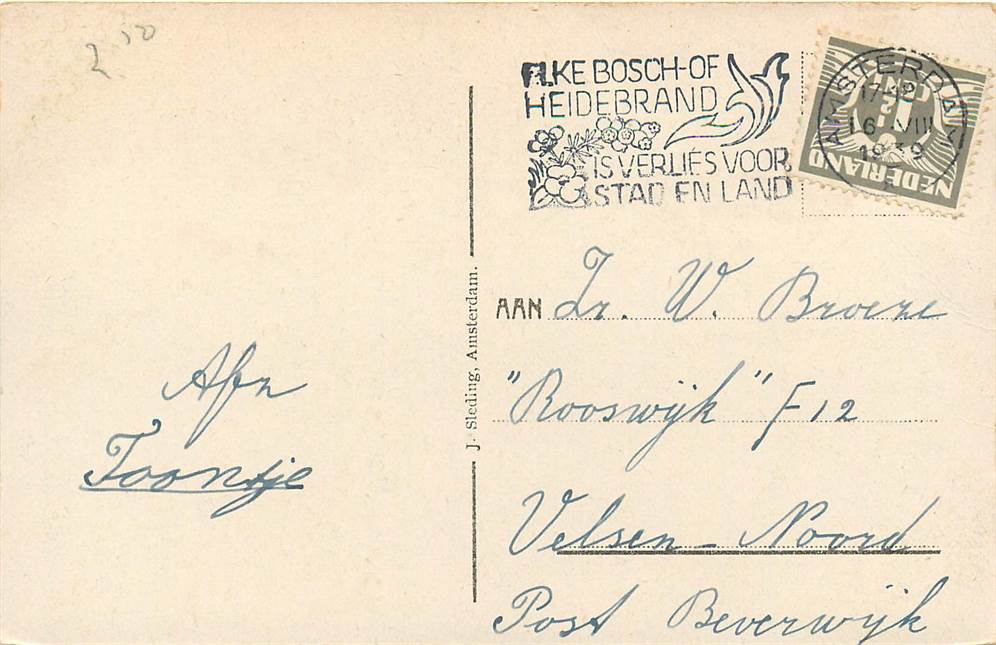 2 50
ELKE BOSCH-OF
HEIDEBRAND
IS VERLIES VOOR
STAD EN LAND
AMSTERDAM
16 VIII
1939
NEDERLAND
AAN Zr. W. Broeze
"Rooswijk" F 12
Velsen-Noord
Post Beverwijk
J. Sleding, Amsterdam.
Afz
Toontje